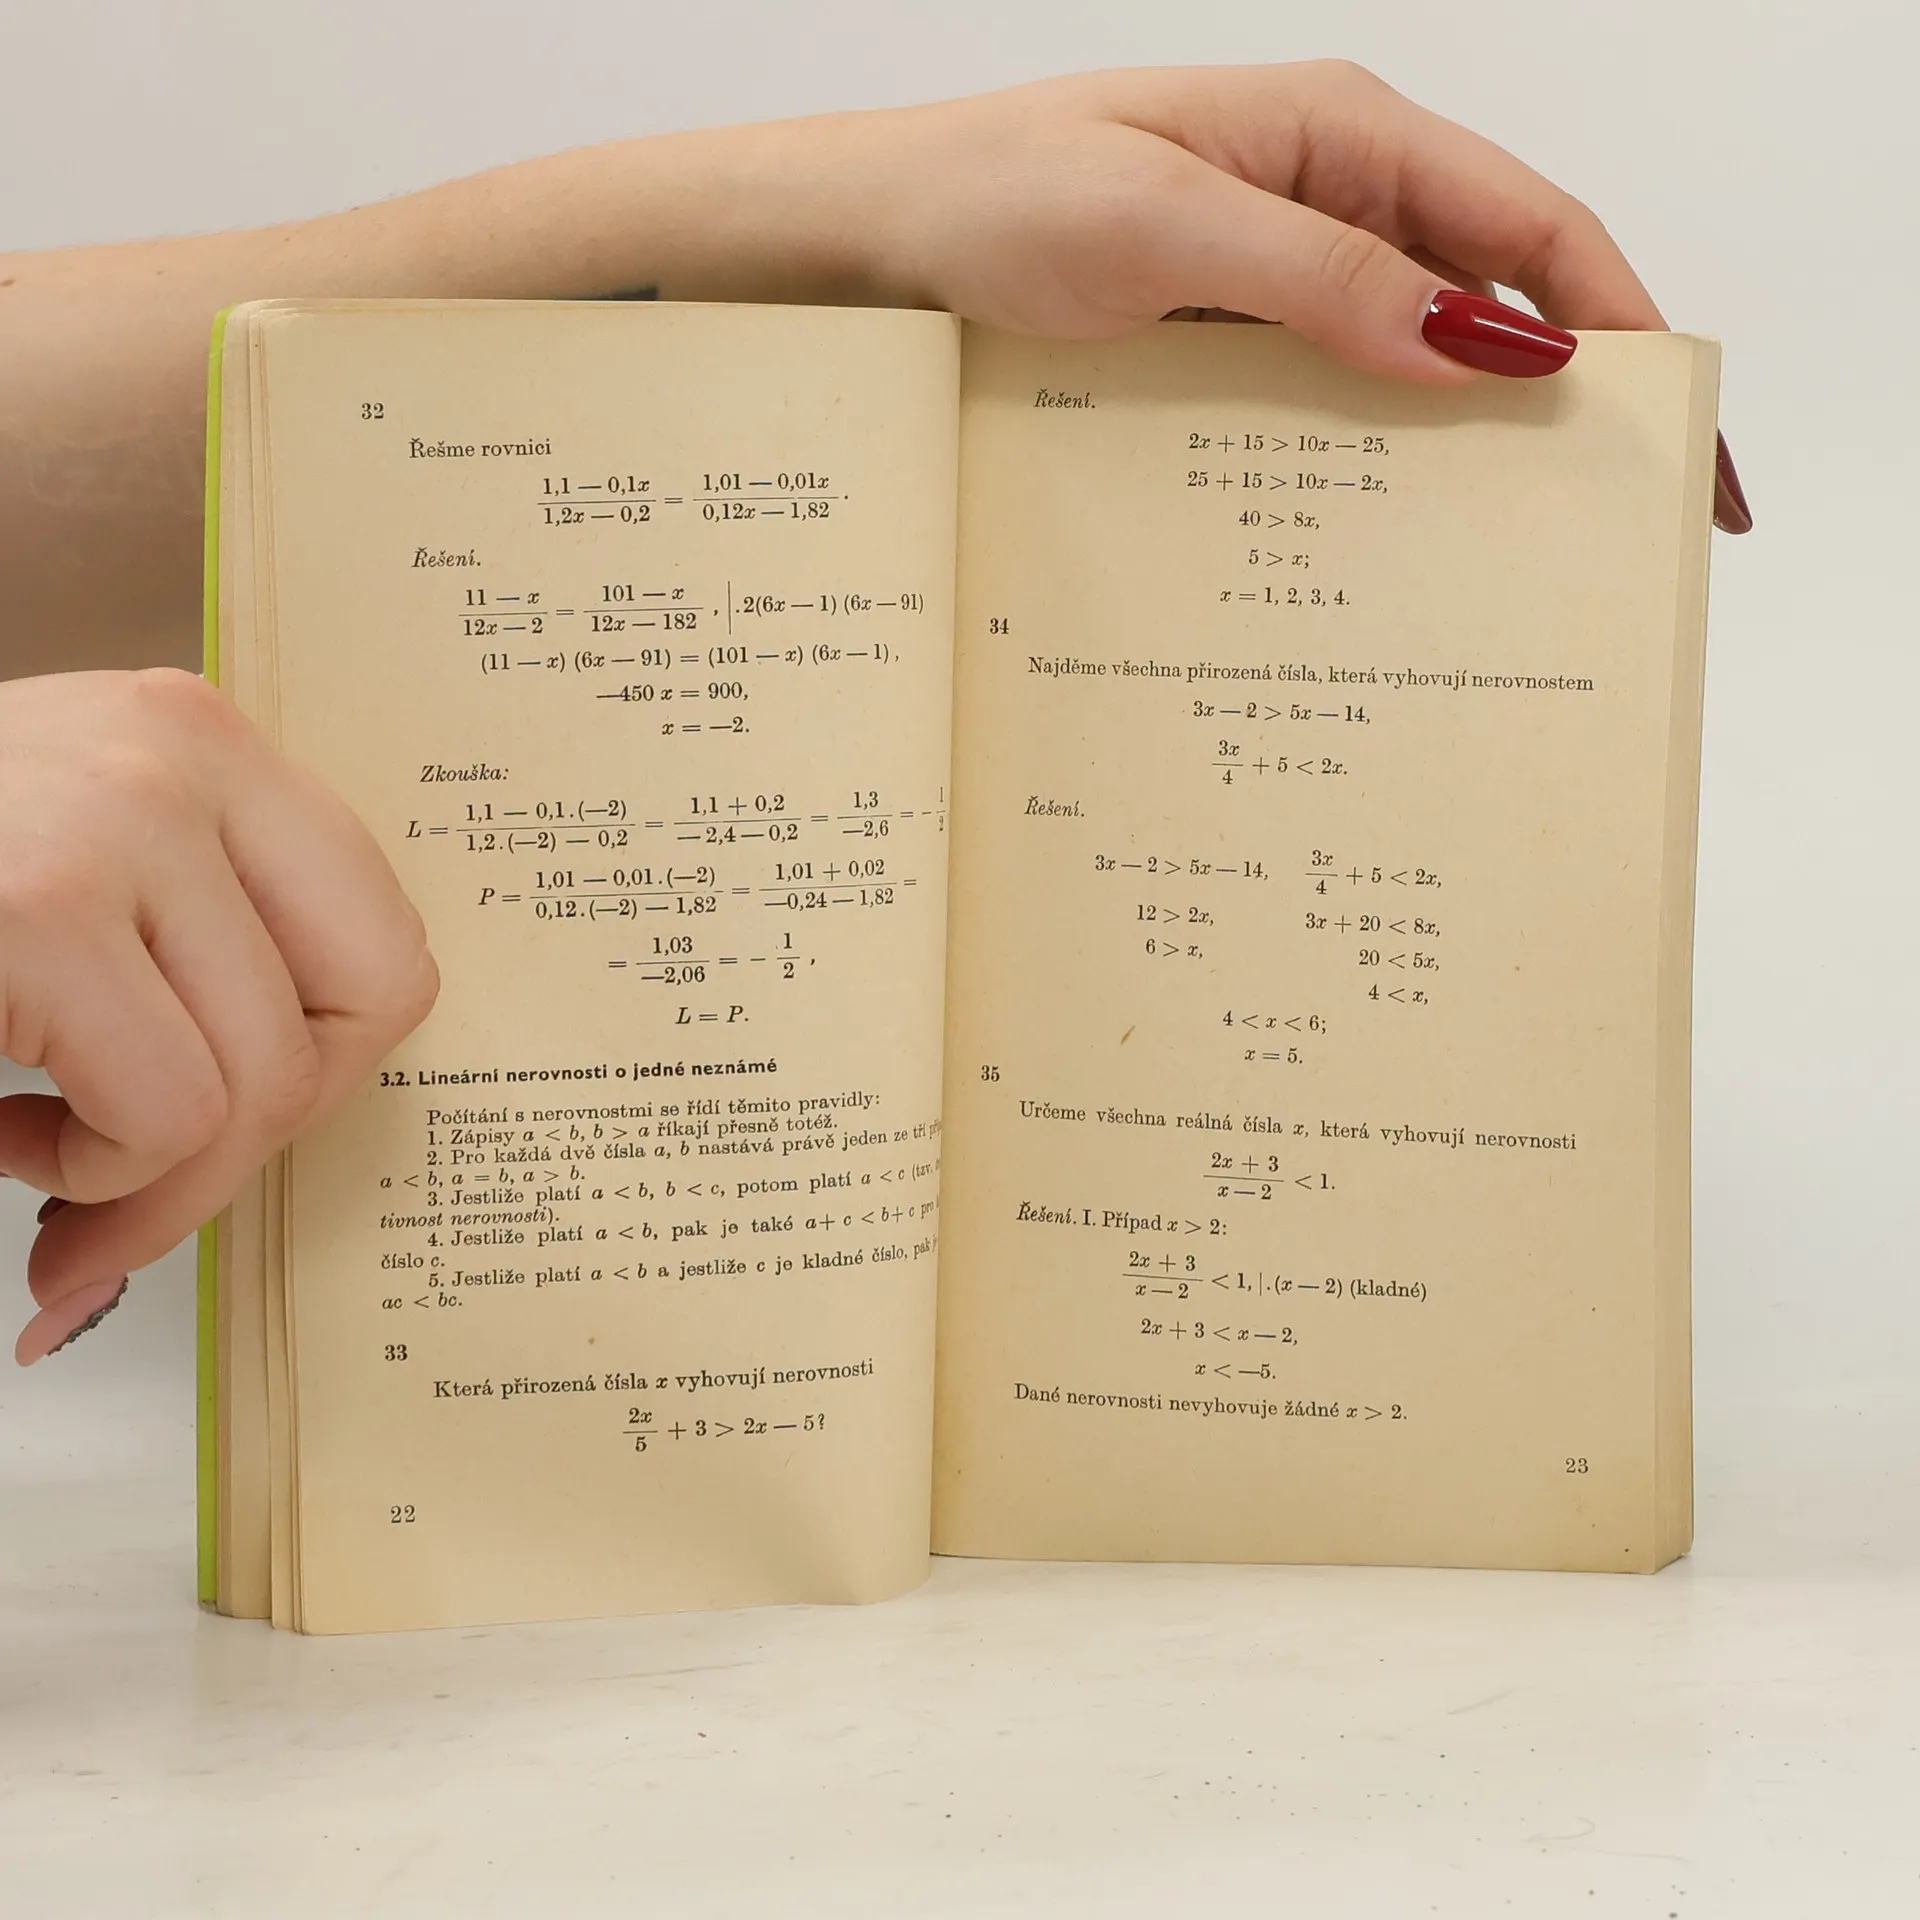 32
Řešme rovnici
(1,1 — 0,1x)/(1,2x — 0,2) = (1,01 — 0,01x)/(0,12x — 1,82).
Řešení.
(11 — x)/(12x — 2) = (101 — x)/(12x — 182), |.2(6x — 1) (6x — 91)
(11 — x) (6x — 91) = (101 — x) (6x — 1),
—450 x = 900,
x = —2.
Zkouška:
L = (1,1 — 0,1.(—2))/(1,2.(—2) — 0,2) = (1,1 + 0,2)/(—2,4 — 0,2) = 1,3/—2,6 = - 1/2
P = (1,01 — 0,01.(—2))/(0,12.(—2) — 1,82) = (1,01 + 0,02)/(—0,24 — 1,82) =
= 1,03/—2,06 = - 1/2,
L = P.
3.2. Lineární nerovnosti o jedné neznámé
Počítání s nerovnostmi se řídí těmito pravidly:
1. Zápisy a < b, b > a říkají přesně totéž.
2. Pro každá dvě čísla a, b nastává právě jeden ze tří
a < b, a = b, a > b.
3. Jestliže platí a < b, b < c, potom platí a < c (tzv.
tivnost nerovnosti).
4. Jestliže platí a < b, pak je také a + c < b + c pro
číslo c.
5. Jestliže platí a < b a jestliže c je kladné číslo, pak
ac < bc.
33
Která přirozená čísla x vyhovují nerovnosti
2x/5 + 3 > 2x — 5?
22
Řešení.
2x + 15 > 10x — 25,
25 + 15 > 10x — 2x,
40 > 8x,
5 > x;
x = 1, 2, 3, 4.
34
Najděme všechna přirozená čísla, která vyhovují nerovnostem
3x — 2 > 5x — 14,
3x/4 + 5 < 2x.
Řešení.
3x — 2 > 5x — 14, 3x/4 + 5 < 2x,
12 > 2x, 3x + 20 < 8x,
6 > x, 20 < 5x,
4 < x,
4 < x < 6;
x = 5.
35
Určeme všechna reálná čísla x, která vyhovují nerovnosti
(2x + 3)/(x — 2) < 1.
Řešení. I. Případ x > 2:
(2x + 3)/(x — 2) < 1, |.(x — 2) (kladné)
2x + 3 < x — 2,
x < —5.
Dané nerovnosti nevyhovuje žádné x > 2.
23